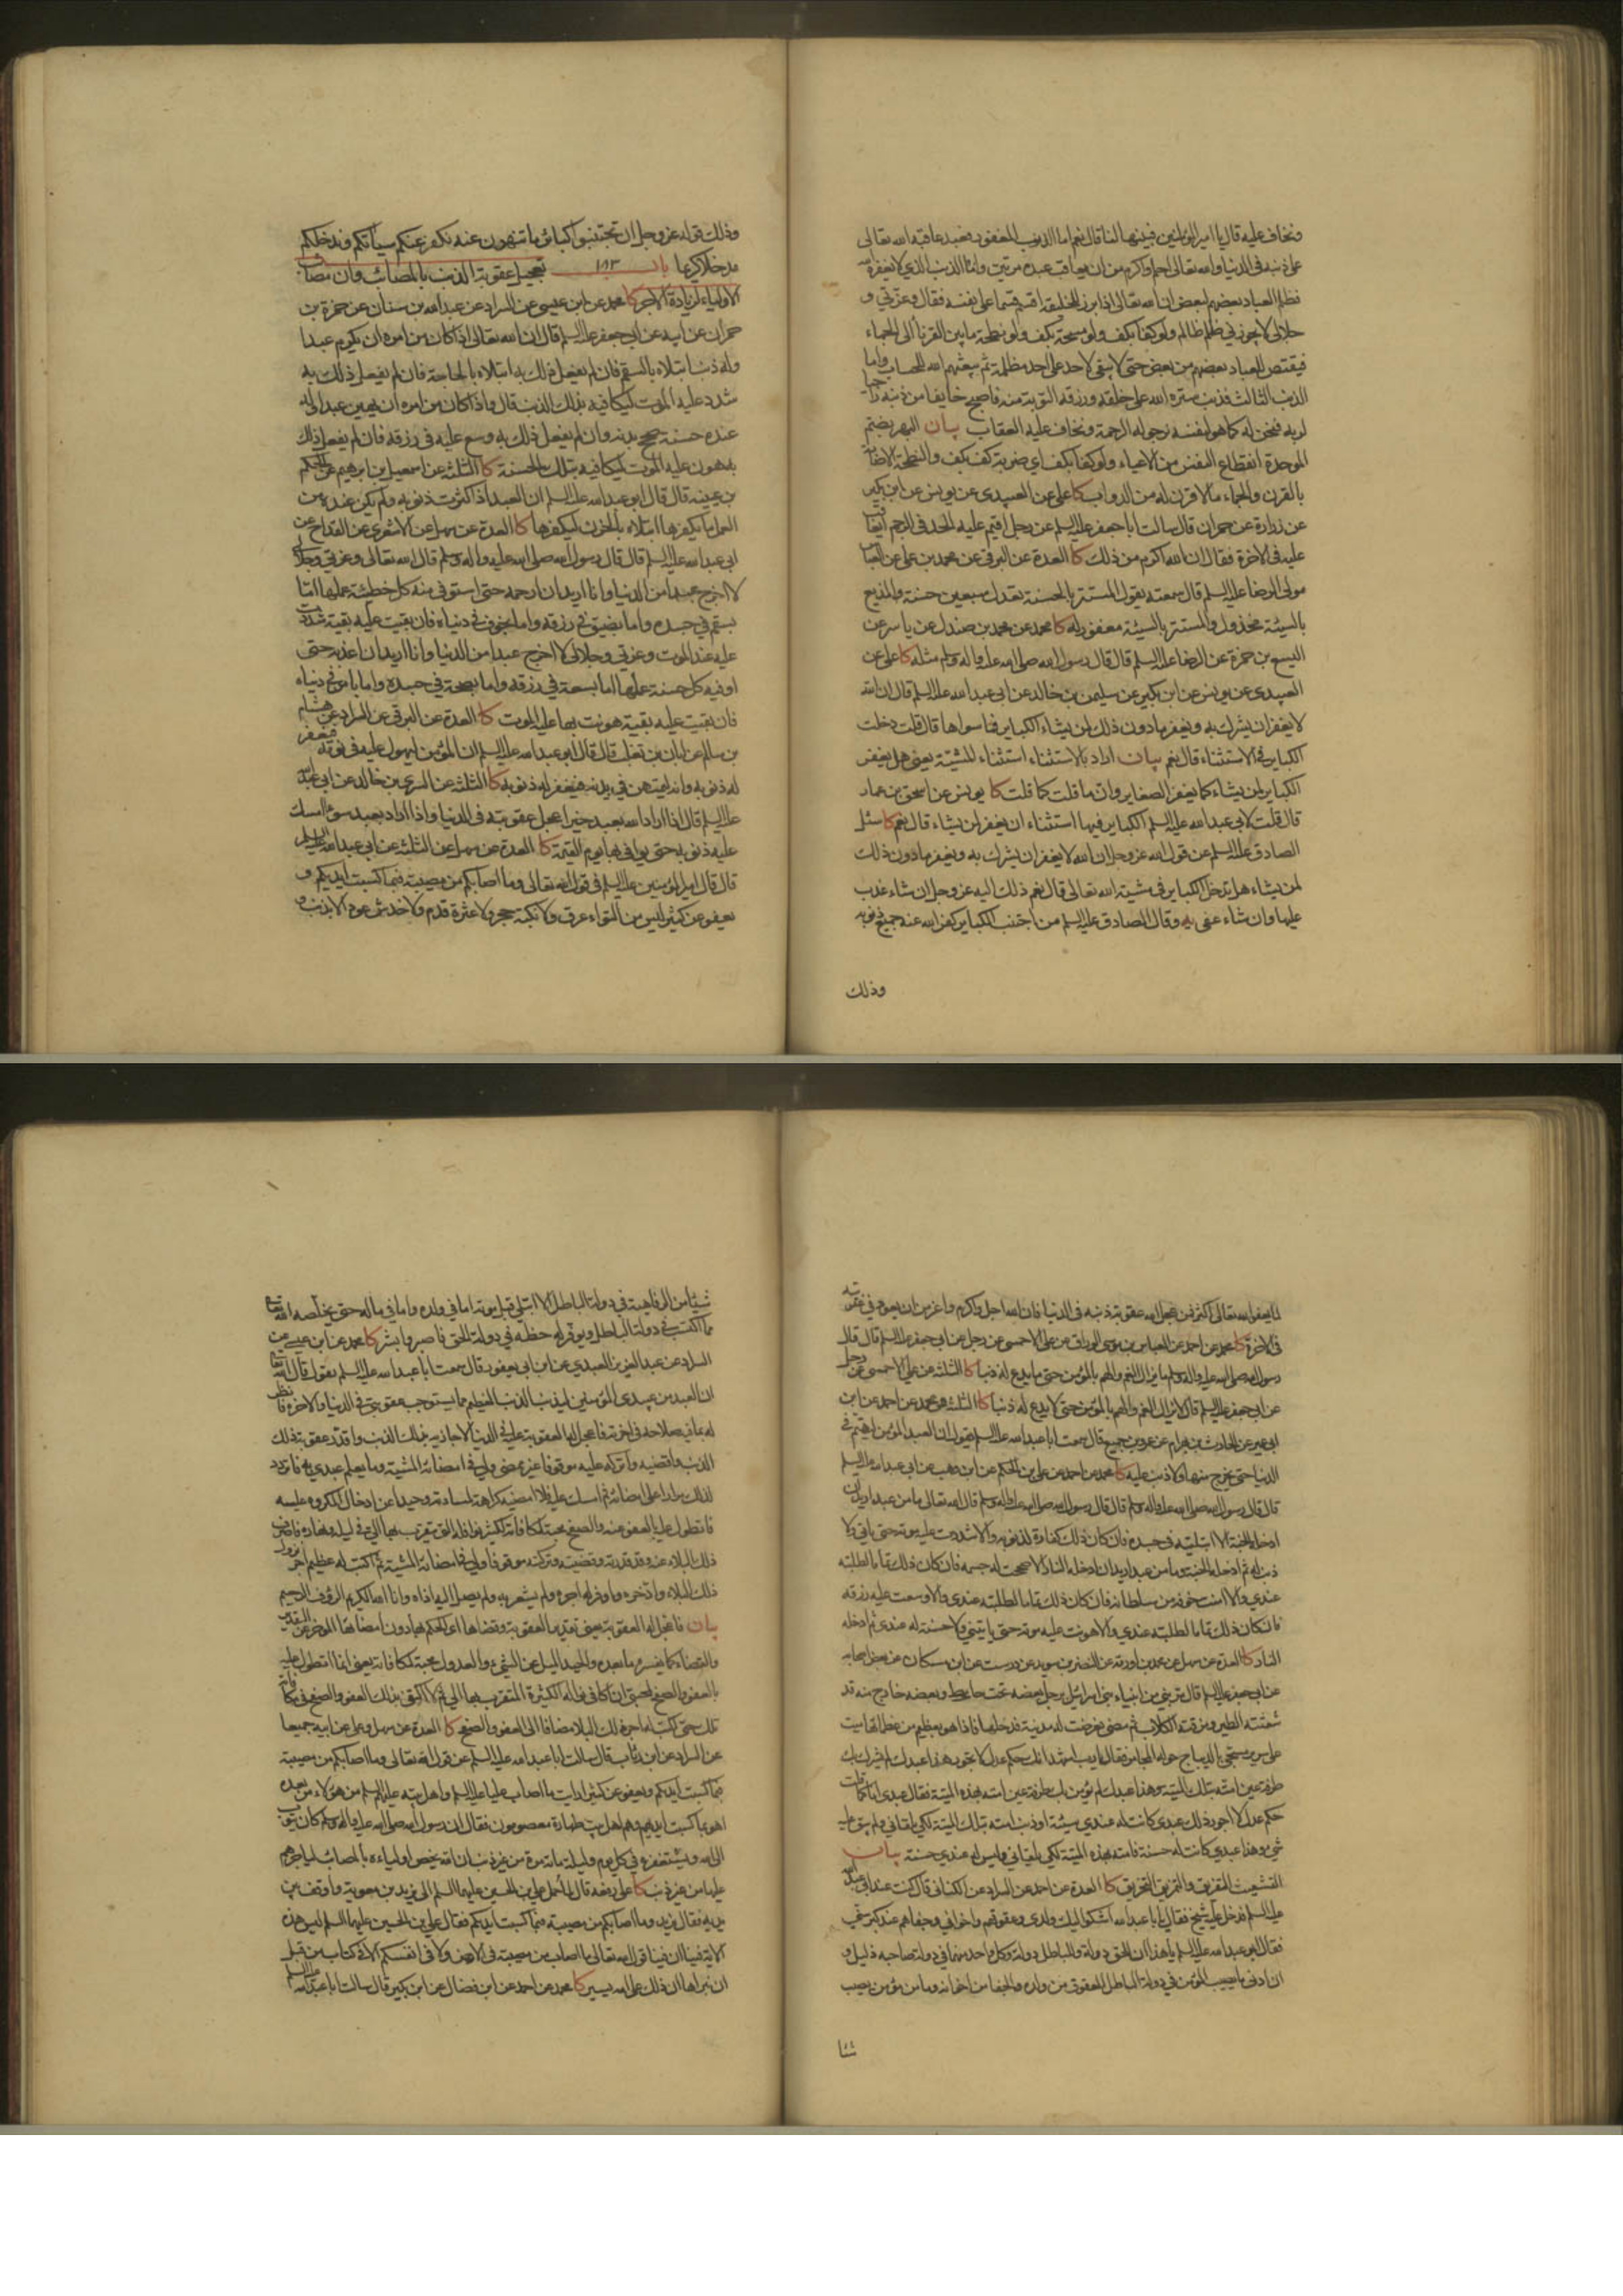 ونخاف عليه قال يا امير المؤمنين فبينها لنا قال نعم اما الذنب المغفور فعبد عاقبه الله تعالى
على ذنبه في الدنيا والله تعالى احلم واكرم من ان يعاقب عبده مرتين واما الذنب الذي لا يغفره الله
فظلم العباد بعضهم لبعض ان الله تعالى اذا برز للخليقة اقسم قسما على نفسه فقال وعزتي و
جلالي لا يجوزني ظلم ظالم ولو كفا بكف ولو مسحة بكف ولو نطحة ما بين القرناء الى الجماء
فيقتص للعباد بعضهم من بعض حتى لا يبقى لاحد على احد مظلمة ثم يبعثهم الله للحساب واما
الذنب الثالث فذنب ستره الله على خلقه ورزقه التوبة منه فاصبح خايفا من ذنبه راجيا
لربه فنحن له كما هو لنفسه نرجو له الرحمة ونخاف عليه العقاب بيان البهر بضم
الموحدة انقطاع النفس من الاعياء ولو كفا بكف اي ضربة كف بكف والنطحة الاصابة
بالقرن والجماء ما لا قرن له من الدواب كا علي عن العبيدي عن يونس عن ابن بكير
عن زرارة عن حمران قال سالت ابا جعفر عليه السلم عن رجل اقيم عليه الحد في الرجم ايعاقب
عليه في الاخرة فقال ان الله اكرم من ذلك كا العدة عن البرقي عن محمد بن علي عن العباس
مولى الرضا عليه السلم قال سمعته يقول المستتر بالحسنة تعدل سبعين حسنة والمذيع
بالسيئة مخذول والمستتر بالسيئة مغفور له كا محمد عن محمد بن صندل عن ياسر عن
اليسع بن حمزة عن الرضا عليه السلم قال قال رسول الله صلى الله عليه واله وسلم مثله كا علي عن
العبيدي عن يونس عن ابن بكير عن سليمن بن خالد عن ابي عبد الله عليه السلم قال ان الله
لا يغفر ان يشرك به ويغفر ما دون ذلك لمن يشاء الكباير فما سواها قال قلت دخلت
الكباير في الاستثناء قال نعم بيان اراد بالاستثناء استثناء المشيئة يعني هل يغفر
الكباير لمن يشاء كما يغفر الصغاير وان ما قلت كما قلت كا يونس عن اسحق بن عمار
قال قلت لابي عبد الله عليه السلم الكباير فيها استثناء ان يغفر لمن يشاء قال نعم كا سئل
الصادق عليه السلم عن قول الله عز وجل ان الله لا يغفر ان يشرك به ويغفر ما دون ذلك
لمن يشاء هل تدخل الكباير في مشية الله تعالى قال نعم ذلك اليه عز وجل ان شاء عذب
عليها وان شاء عفى به وقال الصادق عليه السلم من اجتنب الكباير كفر الله عنه جميع ذنوبه
وذلك
وذلك قوله عز وجل ان تجتنبوا كبائر ما تنهون عنه نكفر عنكم سيأتكم وندخلكم
مدخلا كريما باب ١٨٣ تعجيل عقوبة الذنب بالمصائب وان مصائب
الاولياء لزيادة الاجر كا محمد عن ابن عيسى عن السراد عن عبد الله بن سنان عن حمزة بن
حمران عن ابيه عن ابي جعفر عليه السلم قال ان الله تعالى اذا كان من امره ان يكرم عبدا
وله ذنب ابتلاه بالسقم فان لم يفعل ذلك به ابتلاه بالحاجة فان لم يفعل ذلك به
شدد عليه الموت ليكافيه بذلك الذنب قال واذا كان من امره ان يهين عبدا وله
عنده حسنة صحح بدنه وان لم يفعل ذلك به وسع عليه في رزقه فان لم يفعل ذلك
به هون عليه الموت ليكافيه بتلك الحسنة كا الثلثة عن اسمعيل بن ابرهيم عن الحكم
بن عيينة قال قال ابو عبد الله عليه السلم ان العبد اذا كثرت ذنوبه ولم يكن عنده من
العمل ما يكفرها ابتلاه بالحزن ليكفرها كا العدة عن سهل عن الاشعري عن القداح عن
ابي عبد الله عليه السلم قال قال رسول الله صلى الله عليه واله وسلم قال الله تعالى وعزتي وجلالي
لا اخرج عبدا من الدنيا وانا اريد ان ارحمه حتى استوفي منه كل خطيئة عملها اما
بسقم في جسده واما بضيق في رزقه واما بخوف في دنياه فان بقيت عليه بقية شددت
عليه عند الموت وعزتي وجلالي لا اخرج عبدا من الدنيا وانا اريد ان اعذبه حتى
اوفيه كل حسنة عملها اما بسعة في رزقه واما بصحة في جسده واما بامن في دنياه
فان بقيت عليه بقية هونت بها عليه الموت كا العدة عن البرقي عن السراد عن هشام
بن سالم عن ابان بن تغلب قال قال ابو عبد الله عليه السلم ان المؤمن ليهول عليه في نومه فيغفر
له ذنوبه وانه ليمتهن في بدنه فيغفر له ذنوبه كا الثلثة عن السري بن خالد عن ابي عبد الله
عليه السلم قال اذا اراد الله بعبد خيرا عجل عقوبته في الدنيا واذا اراد بعبد سوءا امسك
عليه ذنوبه حتى يوافي بها يوم القيمة كا العدة عن سهل عن الثلثة عن ابي عبد الله عليه السلم
قال قال امير المؤمنين عليه السلم في قول الله تعالى وما اصابكم من مصيبة فبما كسبت ايديكم و
يعفو عن كثير ليس من التواء عرق ولا نكبة حجر ولا عثرة قدم ولا خدش عود الا بذنب و
لما يعفو الله تعالى اكثر فمن عجل الله عقوبة ذنبه في الدنيا فان الله اجل واكرم واعز من ان يعود في عقوبته
في الاخرة كا محمد عن احمد عن العباس بن موسى الوراق عن علي الاحمسي عن رجل عن ابي جعفر عليه السلم قال قال
رسول الله صلى الله عليه واله وسلم ما يزال الغم والهم بالمؤمن حتى ما يدع له ذنبا كا الثلثة عن علي الاحمسي عن رجل
عن ابي جعفر عليه السلم قال لا يزال الغم والهم بالمؤمن حتى لا يدع له ذنبا كا الثلثة ومحمد عن احمد عن ابن
ابي عمير عن الحارث بن بهرام عن عمرو بن جميع قال سمعت ابا عبد الله عليه السلم يقول ان العبد المؤمن ليهتم في
الدنيا حتى يخرج منها ولا ذنب عليه كا محمد عن احمد عن علي بن الحكم عن ابن وهب عن ابي عبد الله عليه السلم
قال قال رسول الله صلى الله عليه واله وسلم قال الله تعالى ما من عبد اريد ان
ادخله الجنة الا ابتليته في جسده فان كان ذلك كفارة لذنوبه والا شددت عليه موته حتى ياتي ولا
ذنب له ثم ادخله الجنة وما من عبد اريد ان ادخله النار الا صححت له جسمه فان كان ذلك تماما لطلبته
عندي والا امنت خوفه من سلطانه فان كان ذلك تماما لطلبته عندي والا وسعت عليه رزقه
فان كان ذلك تماما لطلبته عندي والا هونت عليه موته حتى ياتيني ولا حسنة له عندي ثم ادخله
النار كا العدة عن سهل عن محمد بن اورمة عن النضر بن سويد عن درست عن ابن مسكان عن بعض اصحابه
عن ابي جعفر عليه السلم قال مر نبي من انبياء بني اسرائيل برجل بعضه تحت حايط وبعضه خارج منه قد
شعثته الطير ومزقته الكلاب ثم مضى فعرضت له مدينة فدخلها فاذا هو بعظيم من عظمائها ميت
على سرير مسجى بالديباج حوله المجامر فقال يا رب اشهد انك حكم عدل لا تجور هذا عبدك لم يشرك بك
طرفة عين امته بتلك الميتة وهذا عبدك لم يؤمن بك طرفة عين امته بهذه الميتة فقال عبدي انا كما قلت
حكم عدل لا اجور ذلك عبدي كانت له عندي سيئة او ذنب امته بتلك الميتة لكي يلقاني ولم يبق عليه
شئ وهذا عبدي كانت له حسنة فامته بهذه الميتة لكي يلقاني وليس له عندي حسنة بيان
التشعيث التفريق والتمزيق التخريق كا العدة عن احمد عن السراد عن الكناني قال كنت عند ابي عبد الله
عليه السلم فدخل عليه شيخ فقال يا ابا عبد الله اشكو اليك ولدي وعقوقهم واخواني وجفاهم عند كبر سني
فقال ابو عبد الله عليه السلم يا هذا ان للحق دولة وللباطل دولة وكل واحد منهما في دولة صاحبه ذليل و
ان ادنى ما يصيب المؤمن في دولة الباطل العقوق من ولده والجفا من اخوانه وما من مؤمن يصيب
شيئا
شيئا من الرفاهية في دولة الباطل الا ابتلي قبل موته اما في ولده واما في ماله حتى يخلصه الله تعالى
مما اكتسب في دولة الباطل ويوفر له حظه في دولة الحق فاصبر وابشر كا محمد عن ابن عيسى عن
السراد عن عبد العزيز العبدي عن ابن ابي يعفور قال سمعت ابا عبد الله عليه السلم يقول قال الله تعالى
ان العبد من عبيدي المؤمنين ليذنب الذنب العظيم مما يستوجب عقوبتي في الدنيا والاخرة فانظر
له بما فيه صلاحه في اخرته فاعجل له العقوبة عليه في الدنيا لاجازيه بذلك الذنب واقدر عقوبة ذلك
الذنب واقضيه واتركه عليه موقوفا غير ممضى ولي في امضائه المشية وما يعلم عبدي به فاتردد
لذلك مرارا على امضائه ثم امسك عنه فلا امضيه كراهة لمساءته وحيدا عن ادخال المكروه عليه
فاتطول عليه بالعفو عنه والصفح محبة لمكافاته لكثير نوافله التي يتقرب بها الي في ليله ونهاره فاصرف
ذلك البلاء عنه وقد قدرته وقضيته وتركته موقوفا ولي في امضائه المشية ثم اكتب له عظيم اجر نزول
ذلك البلاء وادخره واوفر له اجره ولم يشعر به ولم يصل اليه اذاه وانا الله الكريم الرؤف الرحيم
بيان فاعجل له العقوبة يعني تقديرا
بالعفو والصفح
تلك حتى كتب له اجر ذلك البلا مضافا الى العفو والصفح كا العدة عن سهل وعلي عن ابيه جميعا
عن السراد عن ابن رئاب قال سالت ابا عبد الله عليه السلم عن قول الله تعالى وما اصابكم من مصيبة
فبما كسبت ايديكم ويعفو عن كثير ارايت ما اصاب عليا عليه السلم واهل بيته عليهم السلم من هؤلاء من بعده
اهو بما كسبت ايديهم وهم اهل بيت طهارة معصومون فقال ان رسول الله صلى الله عليه واله وسلم كان يتوب
الى الله ويستغفره في كل يوم وليلة مائة مرة من غير ذنب ان الله يخص اولياءه بالمصائب لياجرهم
عليها من غير ذنب كا علي رفعه قال لما حمل علي بن الحسين عليهما السلم الى يزيد بن معوية واوقف بين
يديه فقال يزيد وما اصابكم من مصيبة فبما كسبت ايديكم فقال علي بن الحسين عليهما السلم ليس هذه
الاية فينا ان فينا قول الله تعالى ما اصاب من مصيبة في الارض ولا في انفسكم الا في كتاب من قبل
ان نبراها ان ذلك على الله يسير كا محمد عن احمد عن ابن فضال عن ابن بكير قال سالت ابا عبد الله عليه السلم